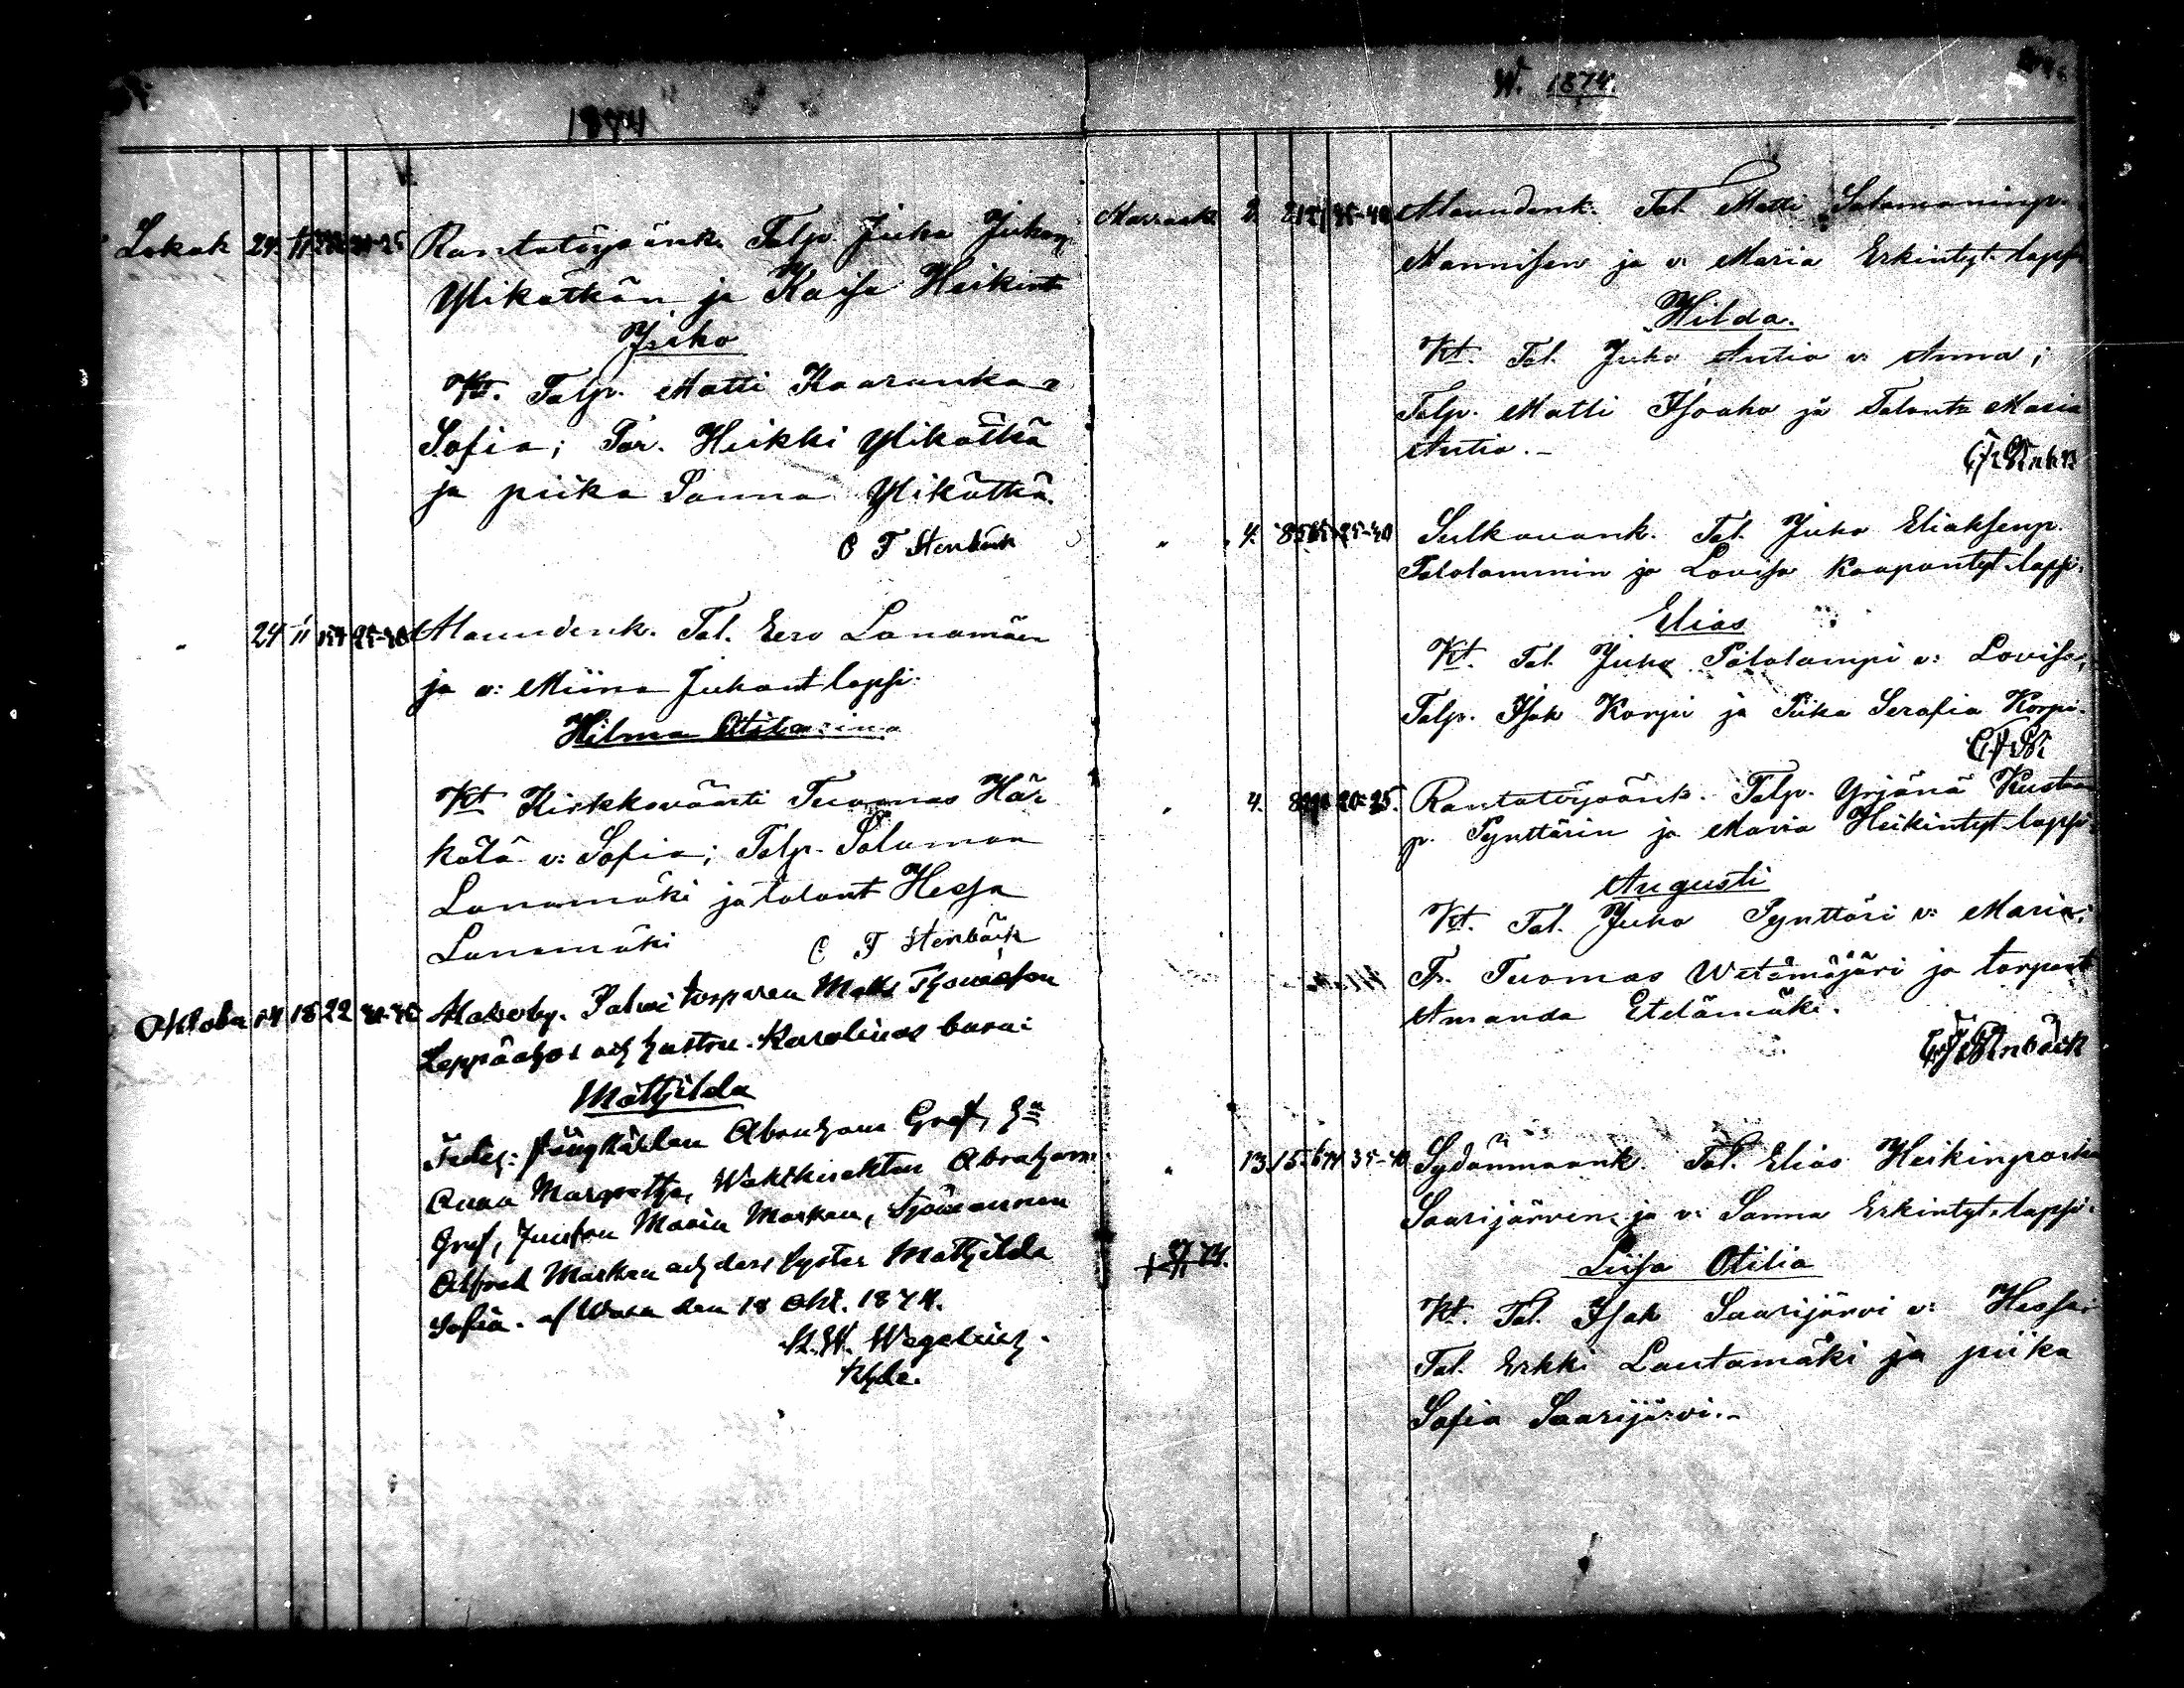 1874
Lokak 24. 11 20-25 Rantatöysänk. Talp. Juho Juhanp.
Ylikätkän ja Kaisa Heikint
Juho
Kt. Talp. Matti Kaaranka v.
Sofia; Tor. Heikki Ylikätkä
ja piika Sanna Ylikätkä.
C F Stenbäck
" 24 11 25-30 Alavudenk. Tal. Eero Lanamäen
ja v: Miina Juhant lapsi.
Hilma
Kt Kirkkoväärti Tuomas Här
kölä v: Sofia; Talp. Salomon
Lanamäki ja talont Hessa
Lanamäki C F Stenbäck
Oktober 14 18 22 Alavoby. Salmi torparen Matts
Leppäahos och hustru Karolinas barn:
Mathilda
Abraham Graf, h:u
Anna Margretha, Abraham
Graf, Maria Markan, Sjömannen
Alfred Markan och dess syster Mathilda
Sofia. af Wasa den 18 Okt. 1874.
K. W. Wegelius
Khde.
W. 1874.
Marrask. 2. 8 35-40 Alavudenk. Tal. Matti Salomoninp.
Mannisen ja v: Maria Erkintyt. lapsi
Hilda.
Kt. Tal. Juho Antio v: Anna;
Talp. Matti Isoaho ja Talont: Maria
Antio.-
" 4. 8 25-30 Sulkavank. Tal. Juho Eliaksenp.
Palolammin ja Lovisa Kaapontyt. lapsi.
Elias
Kt. Tal. Juho Palolampi v: Lovisa;
Talp. Isak Korpi ja Piika Serafia Korpi.
C F St
" 4. 8 20-25. Rantatöysänk. Talp. Yrjänä Kustaa
p. Pynttärin ja Maria Heikintyt. lapsi.
Augusti
Kt. Tal. Juho Pynttäri v: Maria;
Tr. Tuomas Wetämäjäri ja torpant
Amanda Etelämäki.
C F Stenbäck
" 13 15 35-40 Sydänmaank. Tal. Elias Heikinpoika
Saarijärven ja v: Sanna Erkintyt. lapsi.
Liisa Otilia
Kt. Tal. Isak Saarijärvi v: Hessa;
Tal. Erkki Lautamäki ja piika
Sofia Saarijärvi.-